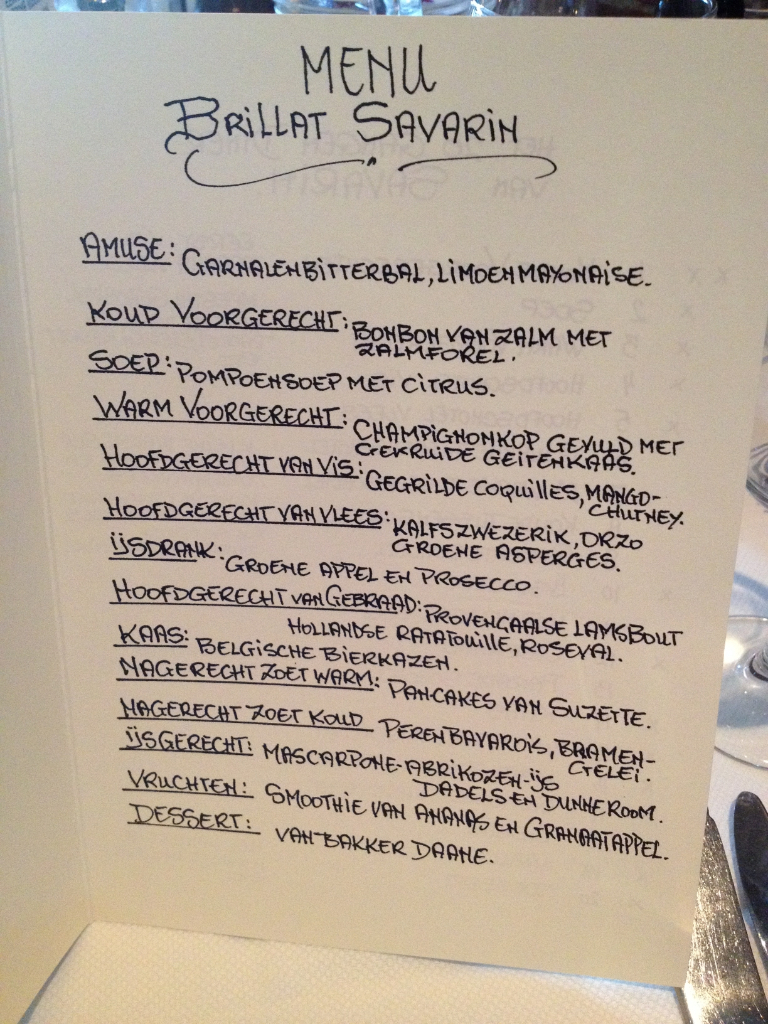 MENU
BRILLAT SAVARIN
AMUSE: GARNALENBITTERBAL, LIMOENMAYONAISE.
KOUD VOORGERECHT: BONBON VAN ZALM MET
ZALMFOREL.
SOEP: POMPOENSOEP MET CITRUS.
WARM VOORGERECHT: CHAMPIGNONKOP GEVULD MET
GEKRUIDE GEITENKAAS.
HOOFDGERECHT VAN VIS: GEGRILDE COQUILLES, MANGO-
CHUTNEY.
HOOFDGERECHT VAN VLEES: KALFSZWEZERIK, ORZO
GROENE ASPERGES.
IJSDRANK: GROENE APPEL EN PROSECCO.
HOOFDGERECHT VAN GEBRAAD: PROVENCAALSE LAMSBOUT
HOLLANDSE RATATOUILLE, ROSEVAL.
KAAS: BELGISCHE BIERKAZEN.
NAGERECHT ZOET WARM: PANCAKES VAN SUZETTE.
NAGERECHT ZOET KOUD PERENBAVAROIS, BRAMEN-
GELEI.
IJSGERECHT: MASCARPONE-ABRIKOZEN-IJS
DADELS EN DUNNE ROOM.
VRUCHTEN: SMOOTHIE VAN ANANAS EN GRANAATAPPEL.
DESSERT: VAN BAKKER DAANE.